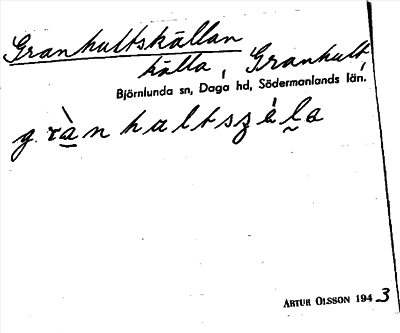 Granhultskällan
källa, Granhult,
Björnlunda sn, Daga hd, Södermanlands län.
gràn haltszéla
ARTUR OLSSON 1943